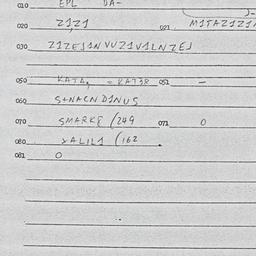 010 EPL DA-
020 Z1Z1 021 M1TAZ1Z1
030 Z1ZEJ1N VUZ1V1LN ZEJ
050 KATA, = KAT3R 051 -
060 S+NACN D1NUS
070 SMARK8 (249 071 0
080 XALIL1 (162
081 0